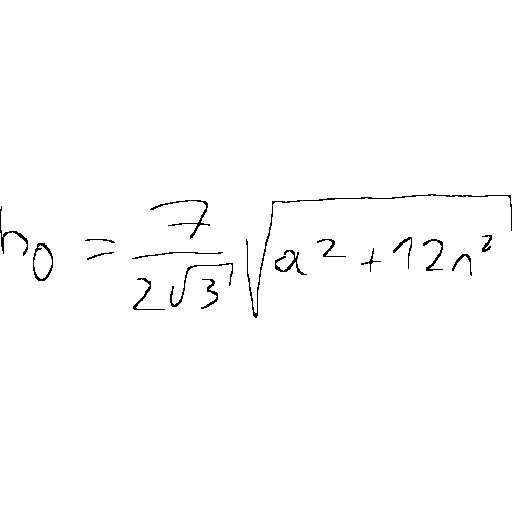 $h_0 = \frac{7}{2\sqrt{3}} \sqrt{a^2 + 12n^2}$